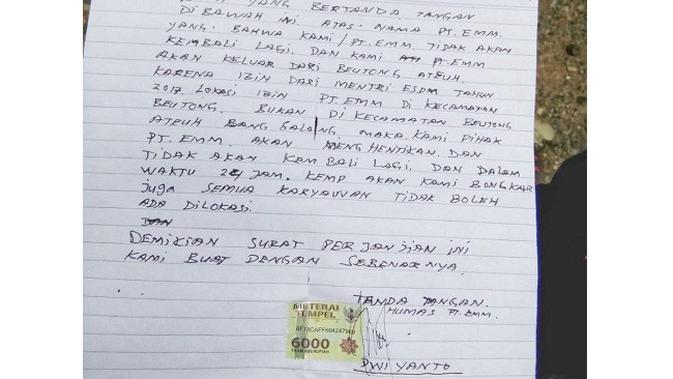 YANG BERTANDA TANGAN
DI BAWAH INI ATAS NAMA PT. EMM.
YANG. BAHWA KAMI / PT. EMM TIDAK AKAN
KEMBALI LAGI. DAN KAMI PT. EMM
AKAN KELUAR DARI BEUTONG ATEUH.
KARENA IZIN DARI MENTRI ESDM TAHUN
2017. LOKASI IZIN PT. EMM DI KECAMATAN
BEUTONG. BUKAN DI KECAMATAN BEUTONG
ATEUH BANG GALANG. MAKA KAMI PIHAK
PT. EMM. AKAN MENGHENTIKAN. DAN
TIDAK AKAN KAMBALI LAGI. DAN DALAM
WAKTU 24 JAM. KEMP AKAN KAMI BONGKAR
juga SEMUA KARYAWAN TIDAK BOLEH
ADA DILOKASI.
DEMIKIAN SURAT PERJANJIAN INI
KAMI BUAT DENGAN SEBENARNYA.
TANDA TANGAN.
HUMAS PT. EMM.
METERAI
TEMPEL
6000
ENAM RIBU RUPIAH
DWI YANTO